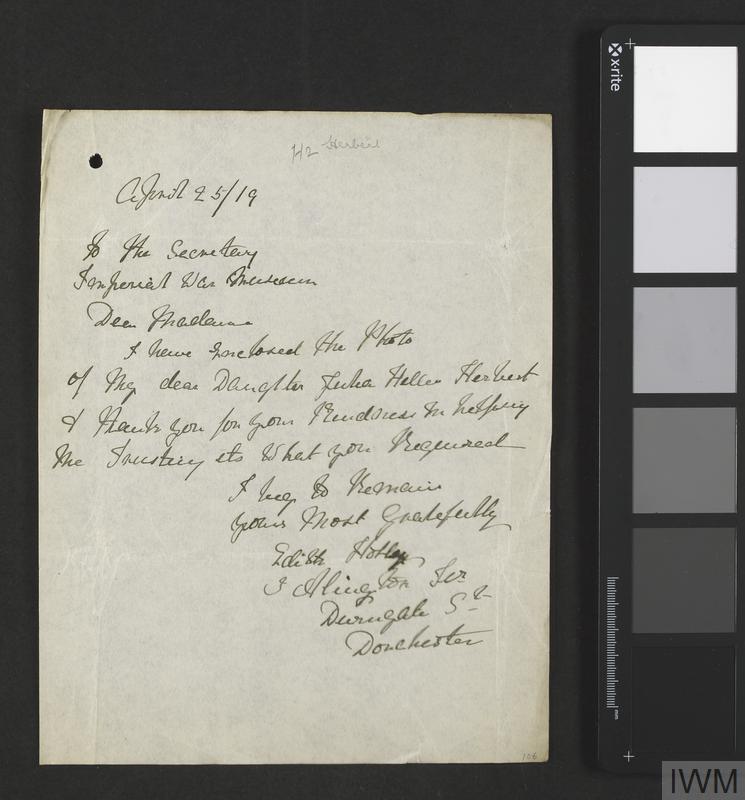 H2 Herbert
April 25/19
To the Secretary
Imperial War Museum
Dear Madam
I have Enclosed the Photo
of My dear Daughter Julia Hellen Herbert
& thank you for your Kindness in helping
Me Trusting its What you Required
I beg to Remain
yours Most Gratefully
Edith
3 Alington Ter
Durngate St
Dorchester
106
x-rite
mm
IWM